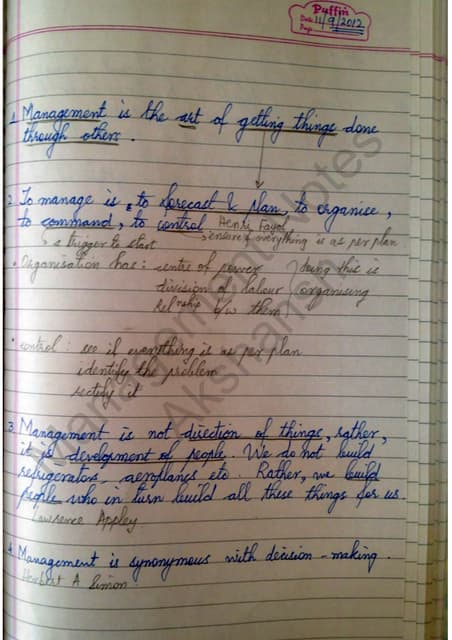 Puffin
Date 11/9/2012
Page
1. Management is the art of getting things done
through others.
2. To manage is, to forecast & plan, to organise,
to command, to control Henri Fayol
↳ a trigger to start
↳ ensure if everything is as per plan
• Organisation has: centre of power
division of labour
Rel'nship b/w them
doing this is
organising
• control: see if everything is as per plan
identify the problem
rectify it
3. Management is not direction of things, rather,
it is development of people. We do not build
refrigerators, aeroplanes etc. Rather, we build
people who in turn build all these things for us.
Lawrence Appley
4. Management is synonymous with decision-making.
Herbert A Simon
Management Notes
Akshansh